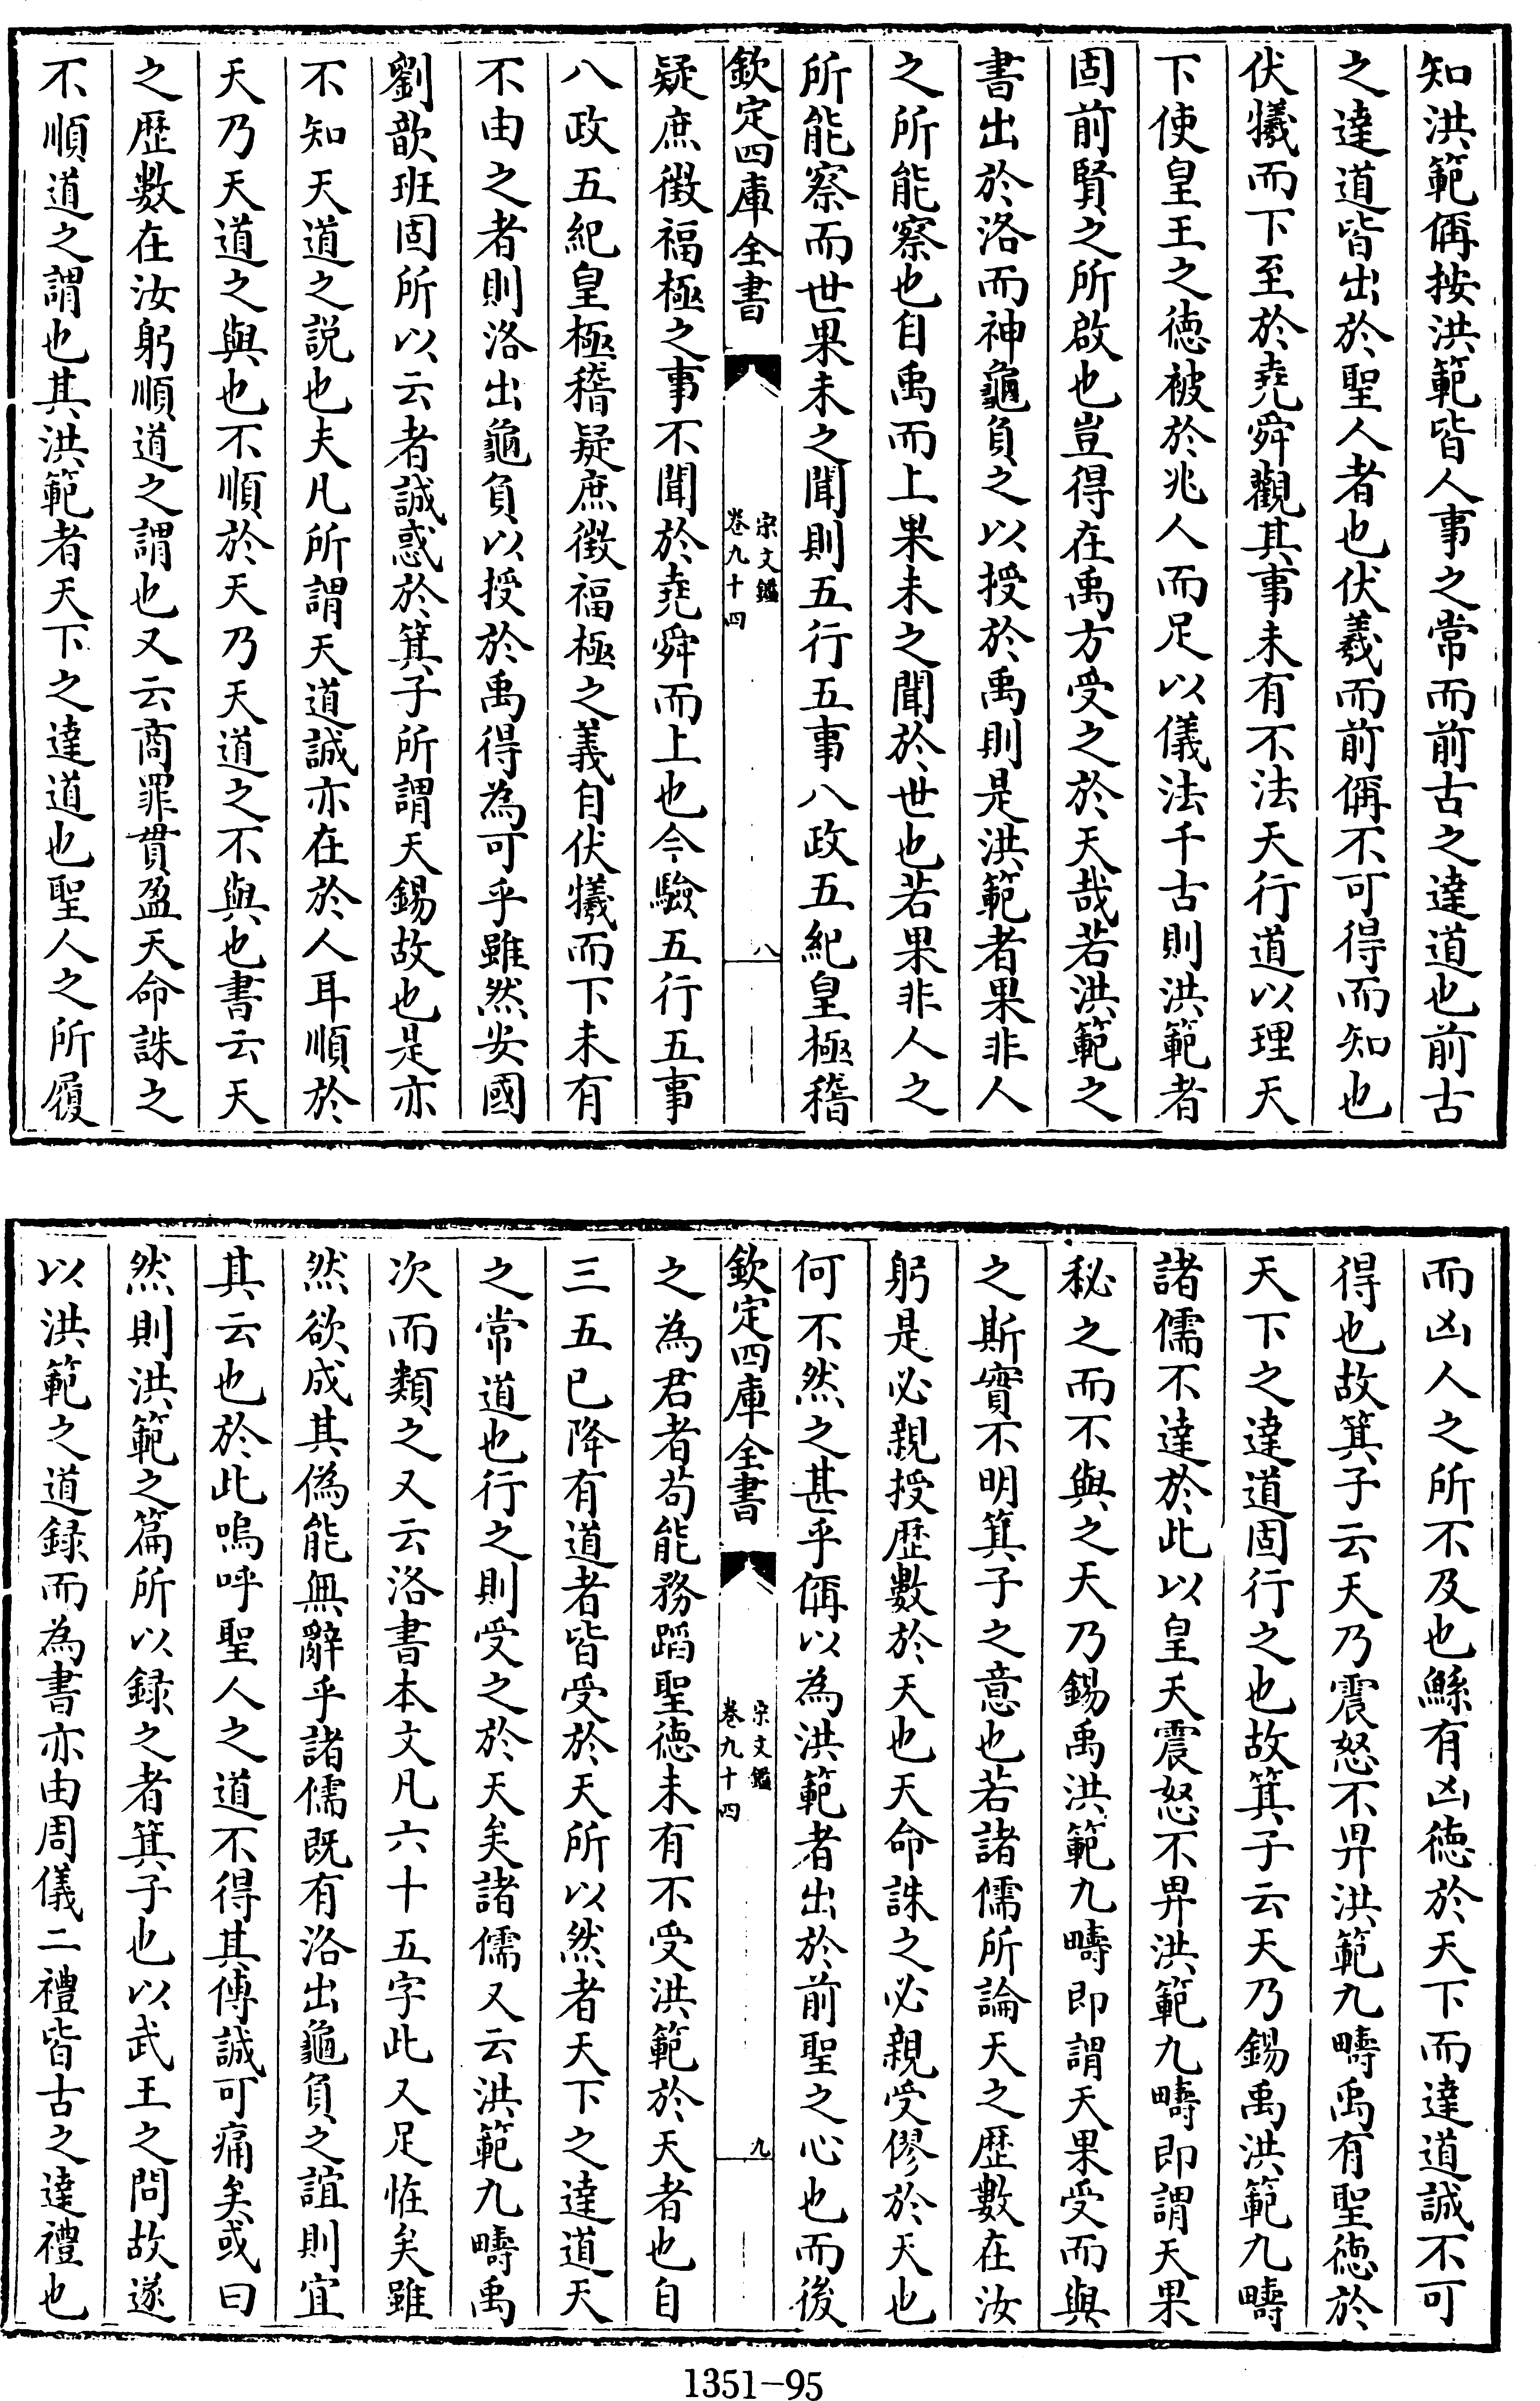 知洪範偁按洪範皆人事之常而前古之達道也前古
之達道皆出於聖人者也伏羲而前偁不可得而知也
伏犧而下至於堯舜觀其事未有不法天行道以理天
下使皇王之徳被於兆人而足以儀法千古則洪範者
固前賢之所啟也豈得在禹方受之於天哉若洪範之
書出於洛而神龜負之以授於禹則是洪範者果非人
之所能察也自禹而上果未之聞於世也若果非人之
所能察而世果未之聞則五行五事八政五紀皇極稽
欽定四庫全書
宋文鑑
卷九十四
八
疑庶徴福極之事不聞於堯舜而上也今驗五行五事
八政五紀皇極稽疑庶徴福極之義自伏犧而下未有
不由之者則洛出龜負以授於禹得為可乎雖然安國
劉歆班固所以云者誠惑於箕子所謂天錫故也是亦
不知天道之説也夫凡所謂天道誠亦在於人耳順於
天乃天道之與也不順於天乃天道之不與也書云天
之歴數在汝躬順道之謂也又云商罪貫盈天命誅之
不順道之謂也其洪範者天下之達道也聖人之所履
而凶人之所不及也鯀有凶徳於天下而達道誠不可
得也故箕子云天乃震怒不畀洪範九疇禹有聖徳於
天下之達道固行之也故箕子云天乃錫禹洪範九疇
諸儒不達於此以皇天震怒不畀洪範九疇即謂天果
秘之而不與之天乃錫禹洪範九疇即謂天果受而與
之斯實不明箕子之意也若諸儒所論天之歴數在汝
躬是必親授歴數於天也天命誅之必親受僇於天也
何不然之甚乎偁以為洪範者出於前聖之心也而後
欽定四庫全書
宋文鑑
卷九十四
九
之為君者茍能務蹈聖徳未有不受洪範於天者也自
三五已降有道者皆受於天所以然者天下之達道天
之常道也行之則受之於天矣諸儒又云洪範九疇禹
次而類之又云洛書本文凡六十五字此又足恠矣雖
然欲成其偽能無辭乎諸儒既有洛出龜負之誼則宜
其云也於此嗚呼聖人之道不得其傅誠可痛矣或曰
然則洪範之篇所以録之者箕子也以武王之問故遂
以洪範之道録而為書亦由周儀二禮皆古之達禮也
1351-95